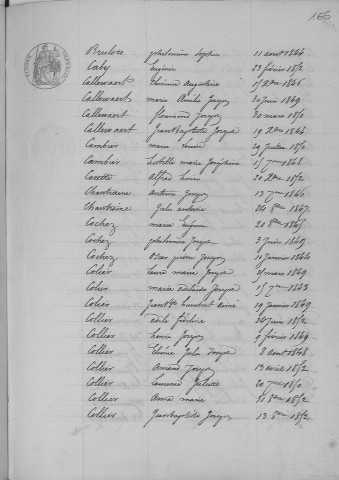 166
Bruloir philomène Sophie 11 août 1844
Caby Eugénie 23 février 1852
Callewaert Clémence Augustine 15 Xbre 1846
Callewaert marie Emilie Joseph 30 juin 1849
Callewaert florimond Joseph 30 mars 1851
Callewaert Jean Baptiste Joseph 19 Xbre 1844
Cambier marie Louise 29 juillet 1850
Cambier Clotilde marie Joséphine 15 7bre 1848
Carette Alfred Louis 20 Xbre 1852
Chantraine Antoine Joseph 13 7bre 1846
Chantraine Jules antoine 24 8bre 1847
Cochez marie Eugénie 20 8bre 1845
Cochez philomène Joseph 3 juin 1849
Cochez Oscar pierre Joseph 10 janvier 1844
Colier marie Joseph 31 mars 1849
Colier maria adelaïde Joseph 15 7bre 1843
Colier Jean Bte humbert aimé 19 janvier 1849
Collier adèle 24 juin 1852
Collier henri Joseph 9 février 1849
Collier Elénie Julie Joseph 8 août 1848
Collier Amand Joseph 13 avril 1852
Collier Laurence Juliette 20 7bre 1850
Collier Anna marie 31 8bre 1852
Collier Jean baptiste Joseph 13 8bre 1852